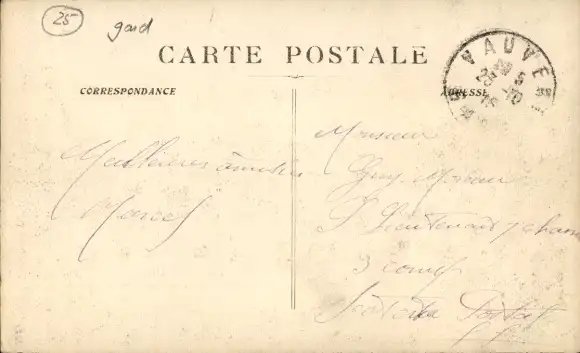 25
gard
CARTE POSTALE
CORRESPONDANCE
ADRESSE
VAUVERT
Meilleures amitiés
Marcel
Monsieur
Guy
S. Lieutenant 7 chass
3 comp
Postal